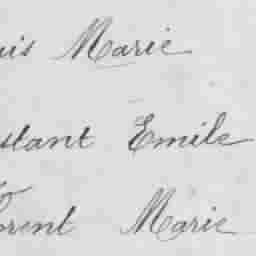 uis Marie
stant Emile
orent Marie